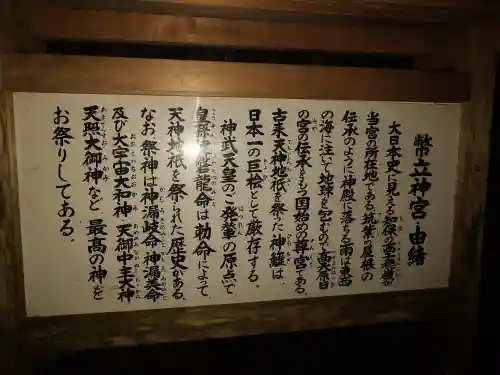 幣立神宮・由緒
大日本史に見える知保の郷
当宮の所在地である。筑紫の屋根の
伝承のように神殿に落ちる雨は東西
の海に注いで地球を包むので高天原日
の宮の伝承をもつ国始めの尊宮である。
古来天神地祇を祭った神籬は、
日本一の巨桧として厳存する。
神武天皇のご発輦の原点で
皇孫健磐龍命は勅命によって
天神地祇を祭られた歴史がある。
なお祭神は神漏岐命神漏美命
及び大宇宙大和神天御中主大神
天照大御神など、最高の神を
お祭りしてある。